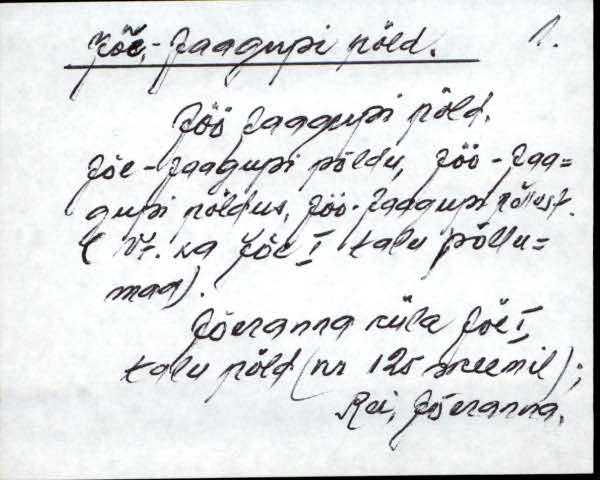 Jõe-Jaagupi põld. 1.
Jõõ Jaagupi põld.
Jõe-Jaagupi põldu, Jõõ-Jaa=
gupi põldus, Jõõ-Jaagupi põllust.
(Vt. ka Jõe I talu põllu=
maa).
Jõeranna küla Jõe I,
talu põld (nr 125 skeemil);
Rei, Jõeranna.